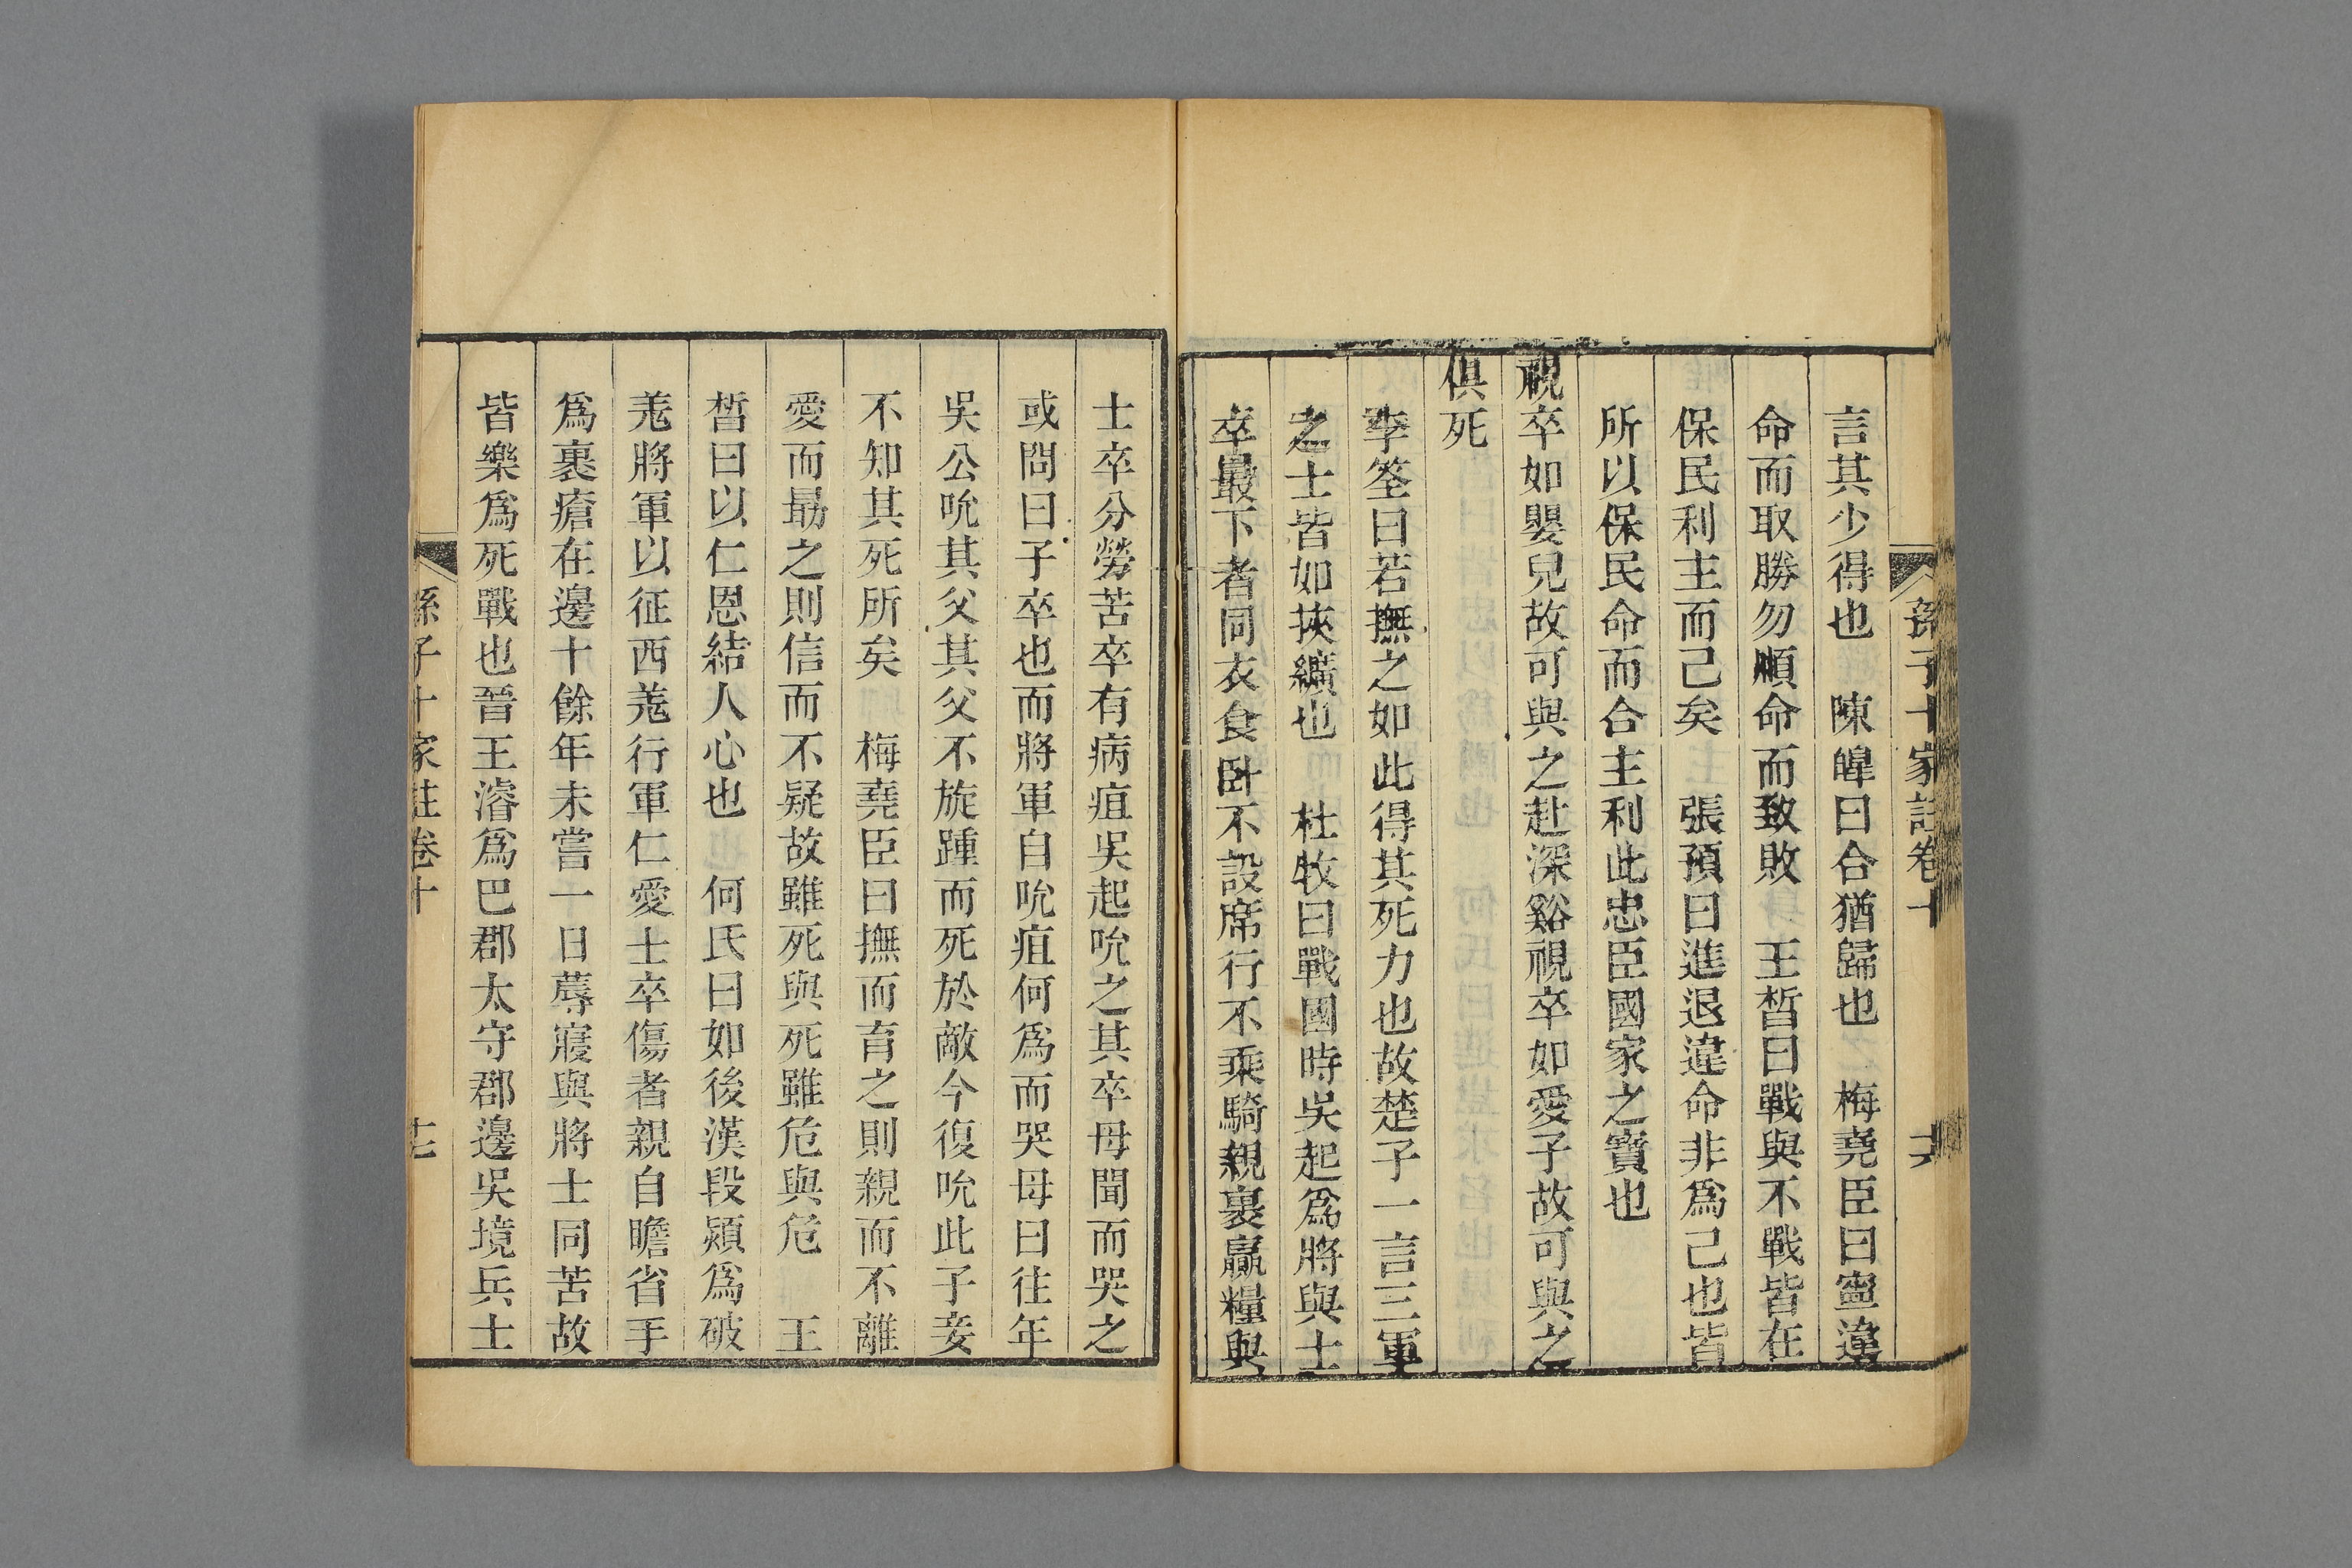 孫子十家註卷十 十六
言其少得也 陳皥曰合猶歸也 梅堯臣曰寧違
命而取勝勿順命而致敗 王晳曰戰與不戰皆在
保民利主而己矣 張預曰進退違命非爲己也皆
所以保民命而合主利此忠臣國家之寶也
視卒如嬰兒故可與之赴深谿視卒如愛子故可與之
俱死
李筌曰若撫之如此得其死力也故楚子一言三軍
之士皆如挾纊也 杜牧曰戰國時吳起爲將與士
卒最下者同衣食臥不設席行不乘騎親裹贏糧與
士卒分勞苦卒有病疽吳起吮之其卒母聞而哭之
或問曰子卒也而將軍自吮疽何爲而哭母曰往年
吳公吮其父其父不旋踵而死於敵今復吮此子妾
不知其死所矣 梅堯臣曰撫而育之則親而不離
愛而勗之則信而不疑故雖死與死雖危與危 王
晳曰以仁恩結人心也 何氏曰如後漢段熲爲破
羗將軍以征西羗行軍仁愛士卒傷者親自瞻省手
爲裹瘡在邊十餘年未嘗一日蓐寢與將士同苦故
皆樂爲死戰也晉王濬爲巴郡太守郡邊吳境兵士
孫子十家註卷十 十七